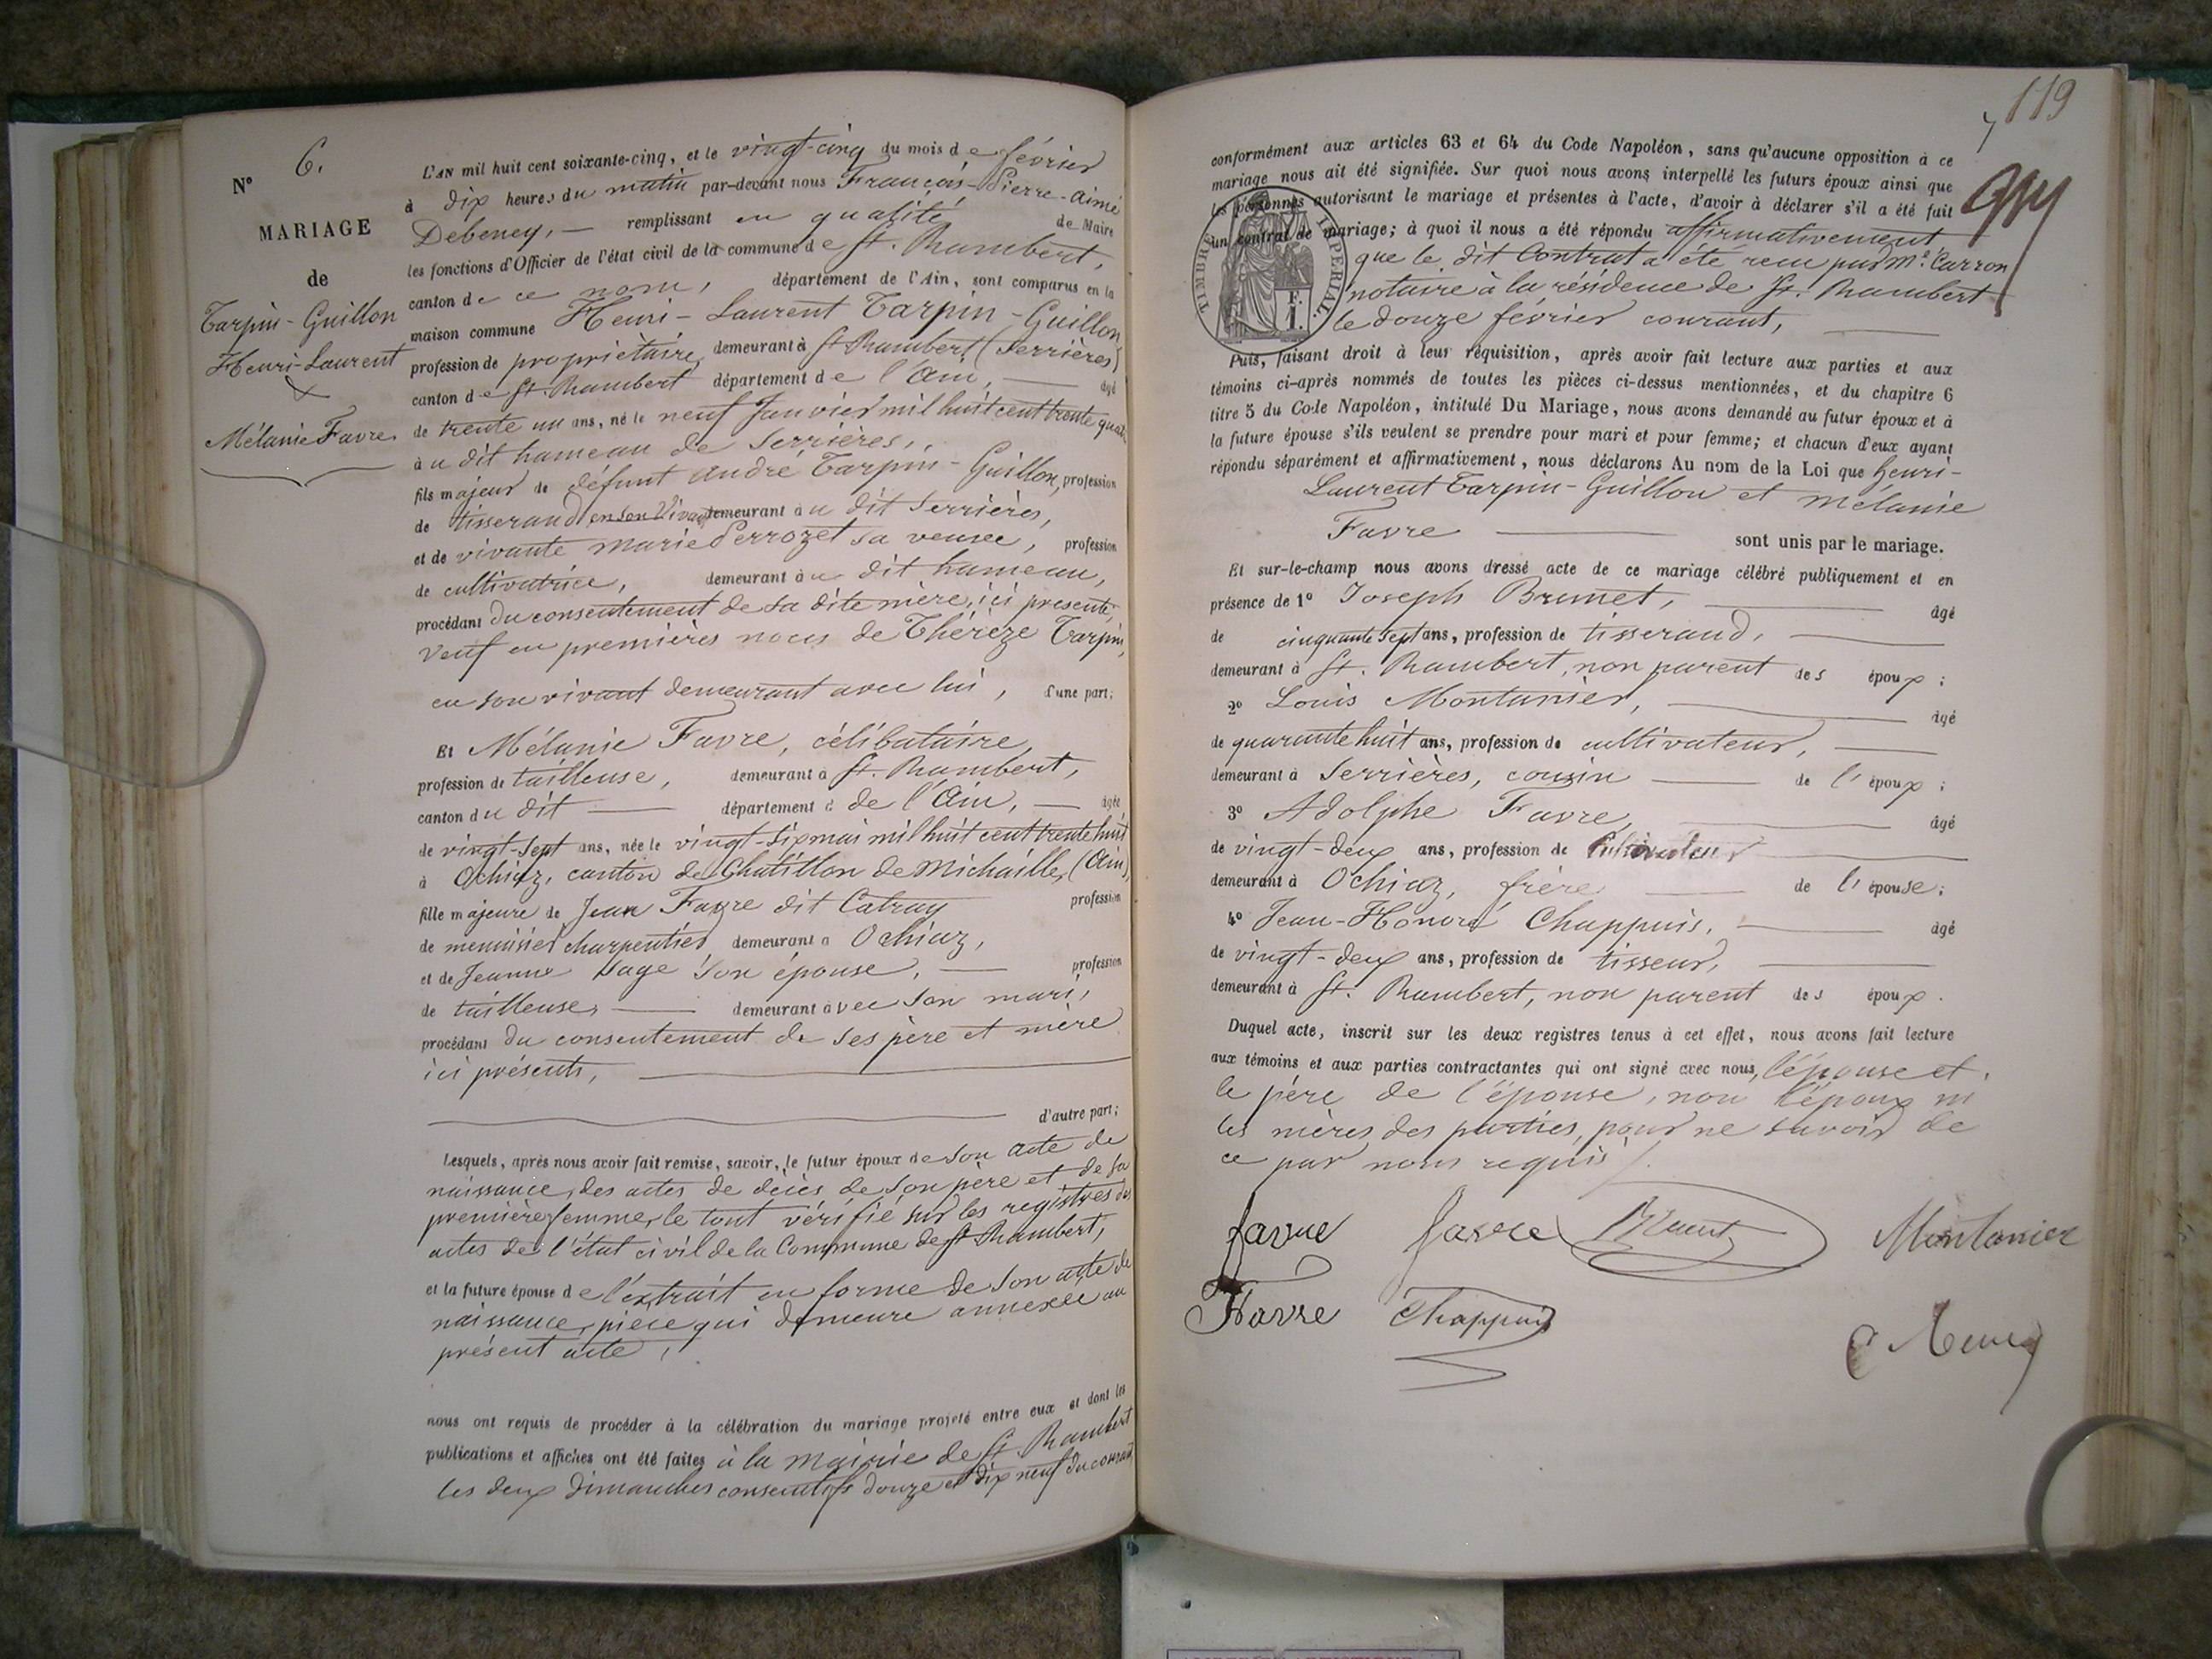 N° 6.
MARIAGE
de
Tarpin-Guillon
Henri-Laurent
&
Mélanie Favre
L'AN mil huit cent soixante-cinq, et le vingt-cinq du mois de février
à dix heures du matin par-devant nous François-Pierre-Aimé
Debeney, remplissant en qualité de Maire
les fonctions d'Officier de l'état civil de la commune de St. Rambert,
canton de ce nom, département de l'Ain, sont comparus en la
maison commune Henri-Laurent Tarpin-Guillon
profession de propriétaire, demeurant à St Rambert (Serrières)
canton de St. Rambert département de l'Ain, âgé
de trente un ans, né le neuf Janvier mil huit cent trente quatre
au dit hameau de Serrières,
fils majeur de défunt André Tarpin-Guillon, profession
de tisserand en son vivant demeurant au dit Serrières,
et de vivante Marie Perrozet sa veuve, profession
de cultivatrice, demeurant au dit hameau,
procédant du consentement de sa dite mère, ici présente,
veuf en premières noces de Thérèze Tarpin,
en son vivant demeurant avec lui, d'une part;
Et Mélanie Favre, célibataire,
profession de tailleuse, demeurant à St. Rambert,
canton du dit département de l'Ain, âgée
de vingt-sept ans, née le vingt-six mai mil huit cent trente huit
à Ochiaz, canton de Châtillon de Michaille, (Ain)
fille majeure de Jean Favre dit Catray profession
de menuisier charpentier demeurant à Ochiaz,
et de Jeanne Sage son épouse, profession
de tailleuse demeurant avec son mari,
procédant du consentement de ses père et mère
ici présents,
d'autre part;
Lesquels, après nous avoir fait remise, savoir, le futur époux de son acte de
naissance, des actes de décès de son père et de sa
première femme, le tout vérifié sur les registres des
actes de l'état civil de la Commune de St Rambert,
et la future épouse de l'extrait en forme de son acte de
naissance, pièce qui demeure annexée au
présent acte,
nous ont requis de procéder à la célébration du mariage projeté entre eux et dont les
publications et affiches ont été faites à la mairie de St. Rambert
les deux dimanches consécutifs douze et dix neuf du courant
119
conformément aux articles 63 et 64 du Code Napoléon, sans qu'aucune opposition à ce
mariage nous ait été signifiée. Sur quoi nous avons interpellé les futurs époux ainsi que
les personnes autorisant le mariage et présentes à l'acte, d'avoir à déclarer s'il a été fait
un contrat de mariage; à quoi il nous a été répondu affirmativement
que le dit Contrat a été reçu par Me. Carron
notaire à la résidence de St. Rambert
le douze février courant,
TIMBRE IMPERIAL.
1 F.
Puis, faisant droit à leur réquisition, après avoir fait lecture aux parties et aux
témoins ci-après nommés de toutes les pièces ci-dessus mentionnées, et du chapitre 6
titre 5 du Code Napoléon, intitulé Du Mariage, nous avons demandé au futur époux et à
la future épouse s'ils veulent se prendre pour mari et pour femme; et chacun d'eux ayant
répondu séparément et affirmativement, nous déclarons Au nom de la Loi que henri-
Laurent Tarpin-Guillon et mélanie
Favre sont unis par le mariage.
Et sur-le-champ nous avons dressé acte de ce mariage célébré publiquement et en
présence de 1° Joseph Brunet, âgé
de cinquante sept ans, profession de tisserand,
demeurant à St. Rambert, non parent des époux;
2° Louis Montanier, âgé
de quarante huit ans, profession de cultivateur,
demeurant à Serrières, cousin de l'époux;
3° Adolphe Favre, âgé
de vingt-deux ans, profession de cultivateur
demeurant à Ochiaz, frère de l'épouse;
4° Jean-Honoré Chappuis, âgé
de vingt-deux ans, profession de tisseur,
demeurant à St. Rambert, non parent des époux.
Duquel acte, inscrit sur les deux registres tenus à cet effet, nous avons fait lecture
aux témoins et aux parties contractantes qui ont signé avec nous, l'épouse et
le père de l'épouse, non l'époux ni
les mères des parties, pour ne savoir de
ce par nous requis
favre favre Brunet Montanier
Favre Chappuis